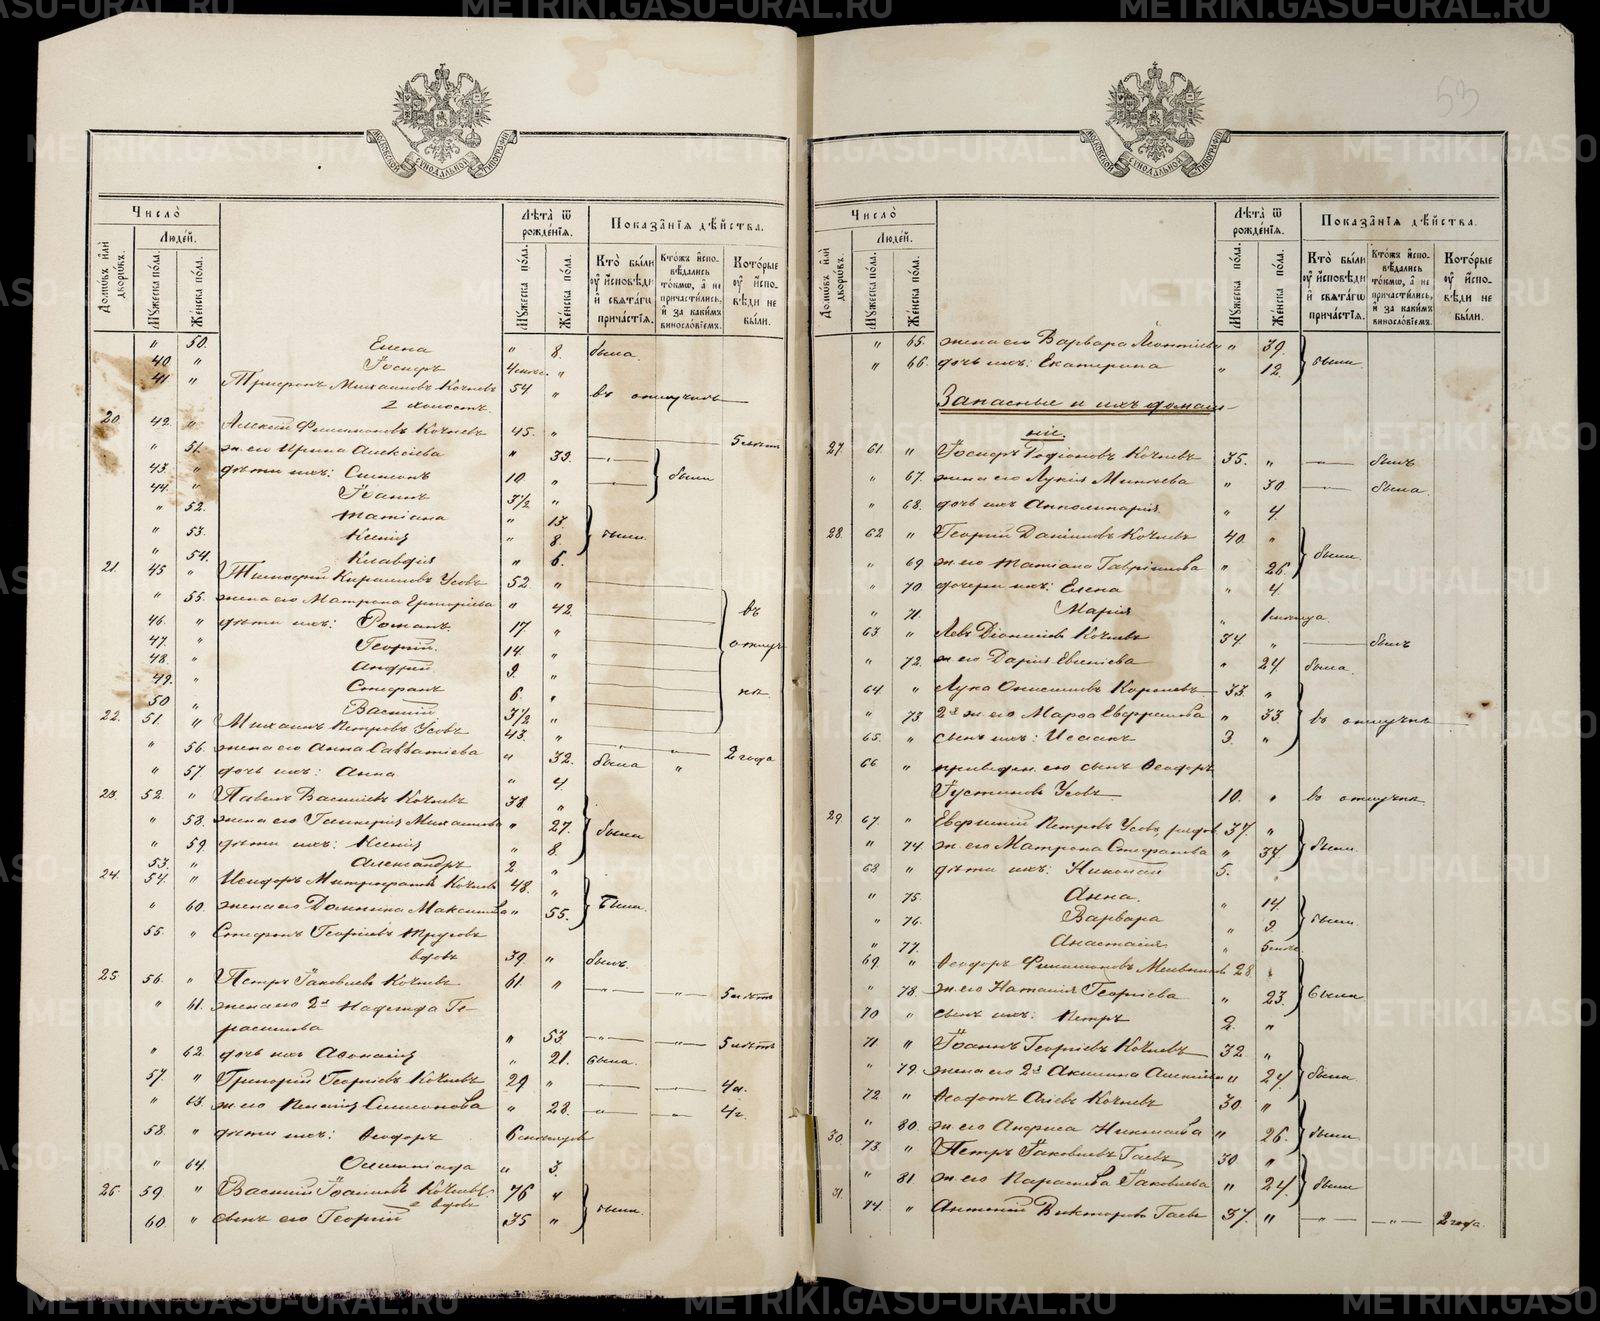 METRIKI.GASO-URAL.RU
53
МОСКОВСКОЙ СѴНОДАЛЬНОЙ ТИПОГРАФІИ
Число̀
Людей.
Домѡвъ илѝ дворѡвъ.
Мꙋжеска пола.
Женска пола.
Лѣта̀ ѿ рожденїѧ.
Мꙋжеска пола.
Женска пола.
Показанїѧ дѣйства.
Кто̀ были ᲂу҆ исповѣди и҆ свѧтагѡ причастїѧ.
Ктожъ исповѣдались токмѡ, а҆ не причастились, и҆ за какимъ винословїемъ.
Которые ᲂу҆ исповѣди не были.
" 50. Елена " 8. была.
40 " Іосифъ
41 " Трифонъ Михаиловъ Кочневъ 54 " въ отлучкѣ
2 холостъ.
20. 42. " Алексѣй Филимоновъ Кочневъ 45. " 5 лѣтъ
" 51. ж. его Ирина Алексѣева " 39.
43. " дѣти ихъ: Симеонъ 10 " были
44. " Іоаннъ 3½ "
" 52. Татіана " 13.
" 53. Ксенія " 8. были.
" 54. Клавдія " 6.
21. 45 " Тимофей Кириловъ Усовъ 52 "
" 55. жена его Матрона Григоріева " 42. въ
46. " дѣти ихъ: Романъ. 17. "
47. " Георгій. 14. " отлуч
48. " Андрей 9. "
49. " Стефанъ 6. " кѣ
50 " Василій 3½ "
22. 51. " Михаилъ Петровъ Усовъ 43. "
" 56. жена его Анна Савватіева " 32. была " 2 года
" 57 дочь ихъ: Анна " 4.
23. 52. " Павелъ Васильевъ Кочневъ 38. "
" 58. жена его Гликерія Михаилова " 27. были
" 59. дѣти ихъ: Ксенія " 8.
53. " Александръ 2 "
24. 54. " Исидоръ Митрофановъ Кочневъ 48. "
" 60. жена его Домнина Максимова " 55. были.
55. " Стефанъ Георгіевъ
вдовъ 39. " былъ.
25 56. " Петръ Іаковлевъ Кочневъ 61. " 5 лѣтъ
" 61. жена его 2я Надежда Ге-
расимова " 53. 5 лѣтъ
" 62. дочь ихъ Аѳанасія " 21. была.
57. " Григорій Георгіевъ Кочневъ 29 " 4 г.
" 63. ж. его Симеонова " 28. 4 г.
58. " дѣти ихъ: Ѳеодоръ 6
" 64. Олимпіада " 3.
26. 59. " Василій Іоанновъ Кочневъ 76 "
2 вдовъ
60. " сынъ его Георгій 35 " были.
Число̀
Людей.
Домѡвъ илѝ дворѡвъ.
Мꙋжеска пола.
Женска пола.
Лѣта̀ ѿ рожденїѧ.
Мꙋжеска пола.
Женска пола.
Показанїѧ дѣйства.
Кто̀ были ᲂу҆ исповѣди и҆ свѧтагѡ причастїѧ.
Ктожъ исповѣдались токмѡ, а҆ не причастились, и҆ за какимъ винословїемъ.
Которые ᲂу҆ исповѣди не были.
" 65. жена его Варвара Леонтіева " 39.
" 66. дочь ихъ: Екатерина " 12. были
Запасные и ихъ домаш-
ніе.
27. 61. " Іосифъ Родіоновъ Кочневъ 35. " былъ
" 67. жена его Лукія " 30 была.
" 68. дочь ихъ Апполинарія " 4.
28. 62 " Георгій Даніиловъ Кочневъ 40. "
" 69 ж. его Татіана Гавріилова " 26. были
" 70 дочери ихъ: Елена " 4
" 71. Марія " 1
63 " Левъ Діонисіевъ Кочневъ 34. " былъ
" 72. ж. его Дарія Евсеніева " 24 была.
64 " Лука Онисимовъ 33. "
" 73 2я ж. его Марѳа Евфремова " 33. въ отлучкѣ
65. " сынъ ихъ: Исаакъ 3. "
66 " приведен. его сынъ Ѳеодоръ
Іустиновъ Усовъ 10. " въ отлучкѣ
29. 67. " Евфимій Петровъ Усовъ, рядов 37. "
" 74 ж. его Матрона Стефанова " 34. были.
68 " дѣти ихъ: Николай 5. "
" 75. Анна. " 14
" 76. Варвара " 9. были.
" 77. Анастасія "
69. " Ѳеодоръ Филимоновъ Мельников 28 "
" 78. ж. его Наталія Георгіева " 23. были
70 " сынъ ихъ: Петръ 2. "
71 " Іоаннъ Георгіевъ Кочневъ 32. "
" 79. жена его 2я Акилина " 24 были.
72 " Ѳеодотъ Кочневъ 30. "
" 80. ж. его Анфиса " 26. были
30. 73. " Петръ Іаковлевъ Гаевъ 30 "
" 81 ж. его Параскева Іаковлева " 24. были
31. 74. " Антоній Викторовъ Гаевъ 37. " 2 года.